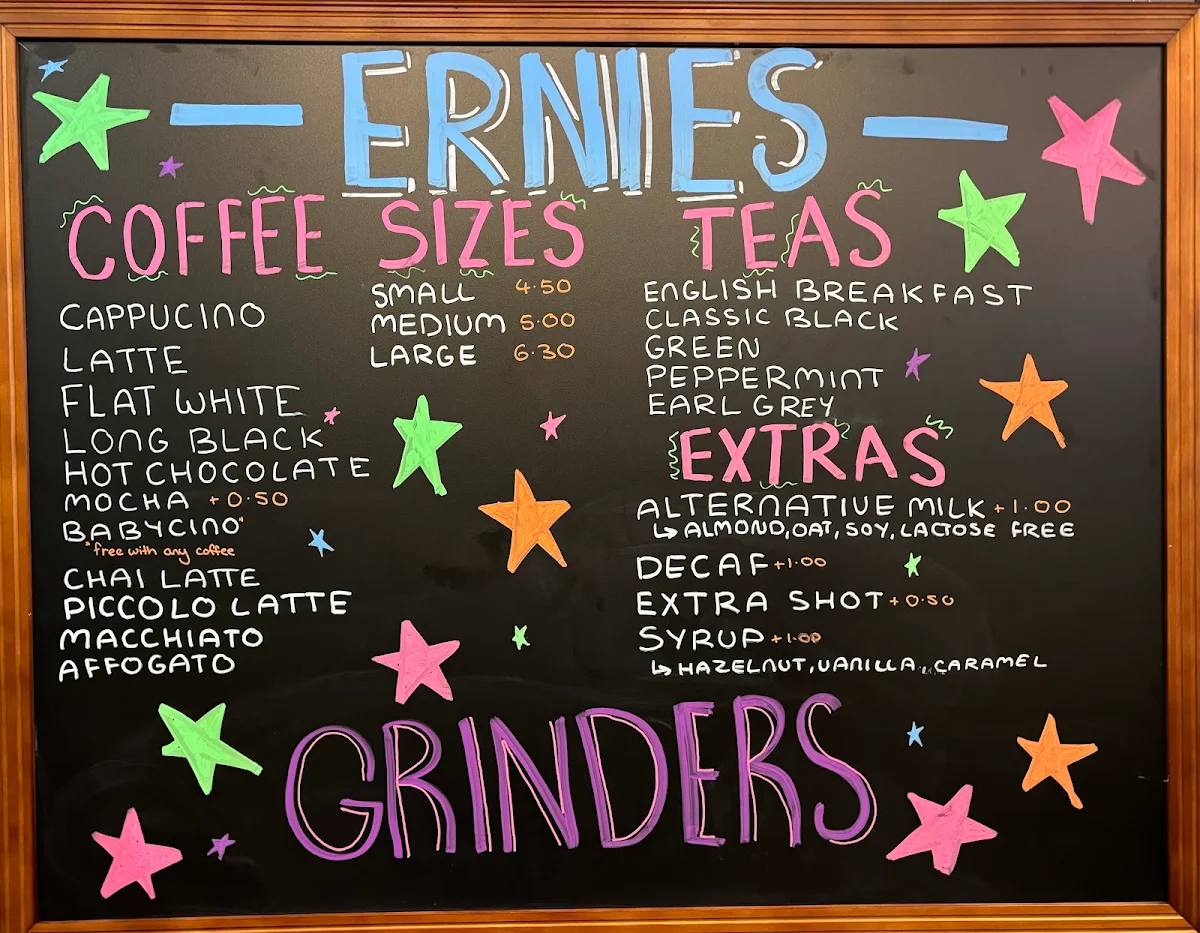 ERNIES
COFFEE
CAPPUCINO
LATTE
FLAT WHITE
LONG BLACK
HOT CHOCOLATE
MOCHA +0.50
BABYCINO*
*free with any coffee
CHAI LATTE
PICCOLO LATTE
MACCHIATO
AFFOGATO
SIZES
SMALL 4.50
MEDIUM 5.00
LARGE 6.30
TEAS
ENGLISH BREAKFAST
CLASSIC BLACK
GREEN
PEPPERMINT
EARL GREY
EXTRAS
ALTERNATIVE MILK +1.00
↳ ALMOND, OAT, SOY, LACTOSE FREE
DECAF +1.00
EXTRA SHOT +0.50
SYRUP +1.00
↳ HAZELNUT, VANILLA, CARAMEL
GRINDERS